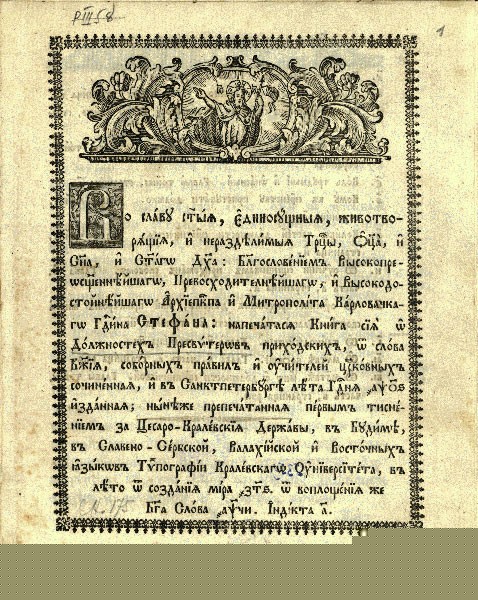 Р III 58
1
Во славу ст҃ыѧ, є҆диносꙋщныѧ, животво-
рѧщїѧ, и҆ нераздѣлимыѧ Трⷪ҇цы, Ѻ҆ц҃а, и҆
Сн҃а, и҆ Ст҃агѡ Дх҃а: Бл҃гословенїемъ Высокопре-
ѡсщ҃еннѣйшагѡ, Превосходителнѣйшагѡ, и҆ Высокодо-
стойнѣйшагѡ А҆рхїепⷭ҇кпа и҆ Митрополі́та Карловачка-
гѡ Гдⷭ҇ина Стефана: напечатасѧ Книга сїѧ ѿ
Должностехъ Пресвѵтерѡвъ приходскихъ, ѿ слова
Бж҃їѧ, соборныхъ правилъ и҆ оу҆чителей цр҃ковныхъ
сочиненнаѧ, и҆ въ Санктпетербꙋргѣ лѣта Гдⷭ҇нѧ ҂аѱ҃ѻѕ
и҆зданнаѧ; нынѣже препечатаннаѧ первымъ тисне-
нїемъ за Цесаро-Кралевскїѧ Державы, въ Бꙋдимѣ,
въ Славено-Сербской, Валахїйской и҆ Восточныхъ
ꙗ҆зыкѡвъ Тѵпографїи Кралевскагѡ Оу҆нїверсїте́та, въ
лѣто ѿ созданїѧ мїра ҂зт҃ѕ. ѿ воплощенїѧ же
Бг҃а Слова ҂аѱ҃чи. І҆ндїкта а҃.